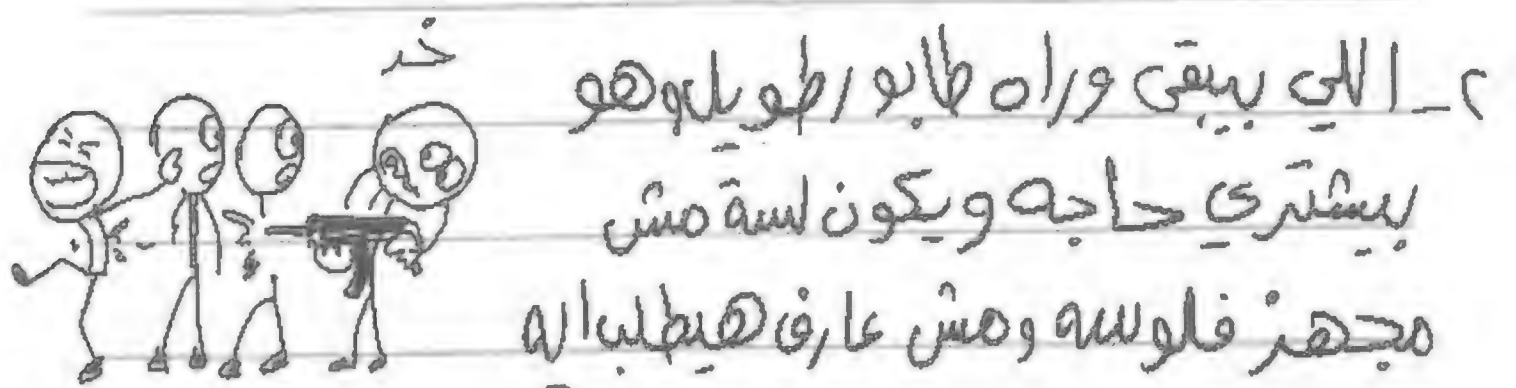 خد
٢_ اللي بيبقى وراه طابور طويل وهو
بيشتري حاجه ويكون لسة مش
مجهز فلوسه ومش عارف هيطلب اية